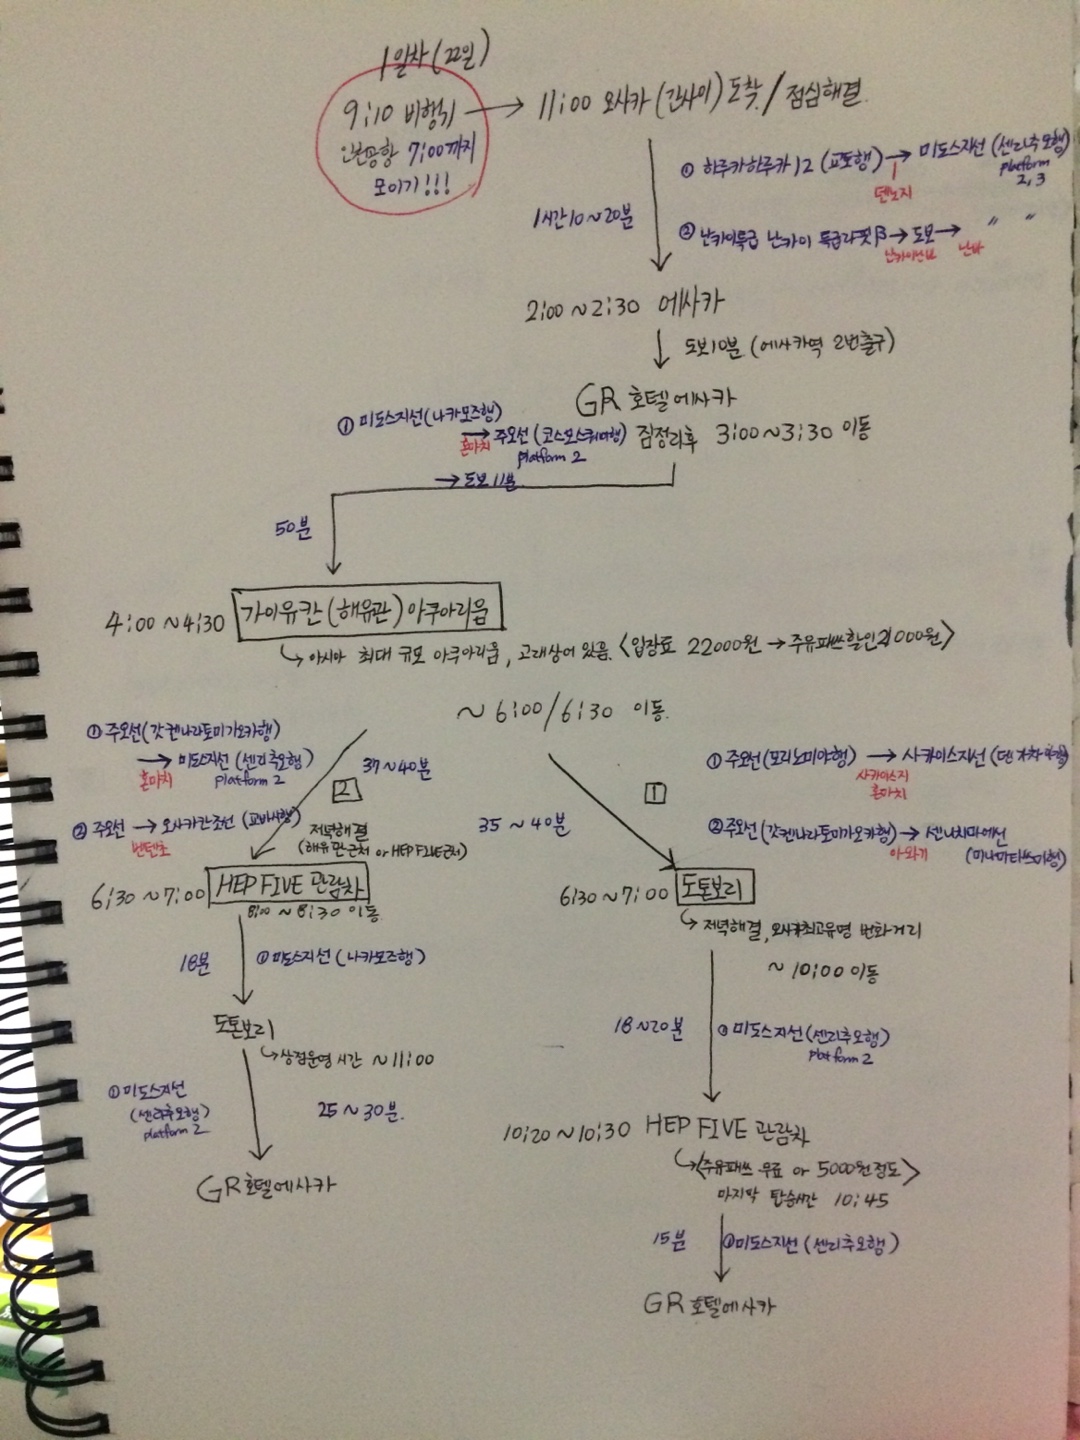 1일차(22일)
9:10 비행기 → 11:00 오사카 (간사이) 도착 / 점심해결
인본공항 7:00까지
모이기!!!
1시간10~20분
① 하루카하루카12 (교토행) → 미도스지선 (센리추오행)
platform 2, 3
텐노지
② 난카이특급 난카이 특급라핏β → 도보 → 〃 〃
난카이난바 난바
2:00 ~ 2:30 에사카
도보10분 (에사카역 2번출구)
GR 호텔에사카
짐정리후 3:00~3:30 이동
① 미도스지선(나카모즈행)
→ 주오선 (코스모스퀘어행)
혼마치 platform 2
→ 도보 11분
50분
4:00 ~4:30 가이유칸 (해유관) 아쿠아리움
↳ 아시아 최대 규모 아쿠아리움, 고래상어 있음. <입장료 22000원 → 주유패쓰할인 21000원>
~ 6:00/6:30 이동.
① 주오선(갓켄나라토미가오카행)
→ 미도스지선 (센리추오행)
혼마치 platform 2
② 주오선 → 오사카칸조선 (교바시행)
벤텐초
37~40분
2
저녁해결
(해유관근처 or HEP FIVE근처)
6:30 ~7:00 HEP FIVE 관람차
8:00 ~ 8:30 이동
18분 ① 미도스지선 (나카모즈행)
도톤보리
↳ 상점운영시간 ~11:00
① 미도스지선
(센리추오행)
platform 2
25 ~ 30분.
GR호텔에사카
1
35 ~ 40분
① 주오선(모리노미야행) → 사카이스지선
사카이스지
혼마치
② 주오선 (갓켄나라토미가오카행) → 센니치마에선
아와자 (미나미타쓰미행)
6:30 ~ 7:00 도톤보리
↳ 저녁해결, 오사카최고유명 번화거리
~ 10:00 이동
18 ~20분 ① 미도스지선 (센리추오행)
platform 2
10:20 ~ 10:30 HEP FIVE 관람차
↳ <주유패쓰 무료 or 5000원정도>
마지막 탑승시간 10:45
15분 ① 미도스지선 (센리추오행)
GR 호텔에사카